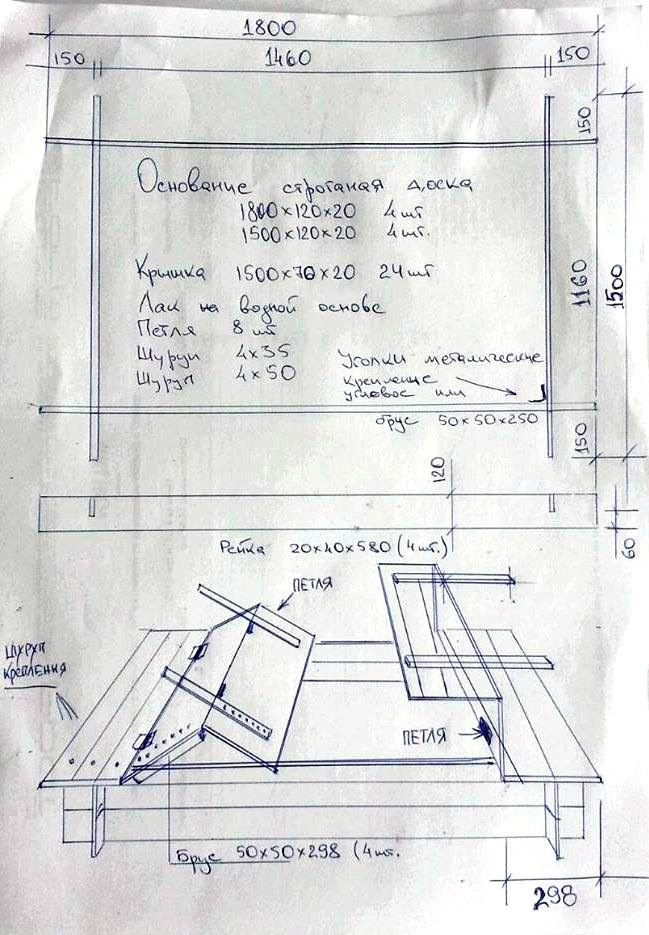 1800
150 1460 150
150
Основание строганая доска
1800×120×20 4 шт
1500×120×20 4 шт.
Крышка 1500×70×20 24 шт
Лак на водной основе
Петля 8 шт
Шуруп 4×35
Шуруп 4×50
1160
1500
Уголки металические
крепление
угловое или
брус 50×50×250
150
120
60
Рейка 20×40×580 (4 шт.)
ПЕТЛЯ
ШУРУП
КРЕПЛЕНИЯ
ПЕТЛЯ
Брус 50×50×298 (4 шт.
298